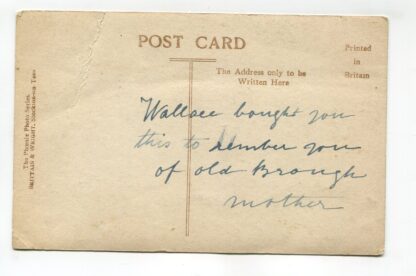 POST CARD
The Address only to be
Written Here
Printed
in
Britain
The Phœnix Photo Series.
BRITTAIN & WRIGHT, Stockton-on-Tees
Wallace bought you
this to rember you
of old Brough
mother